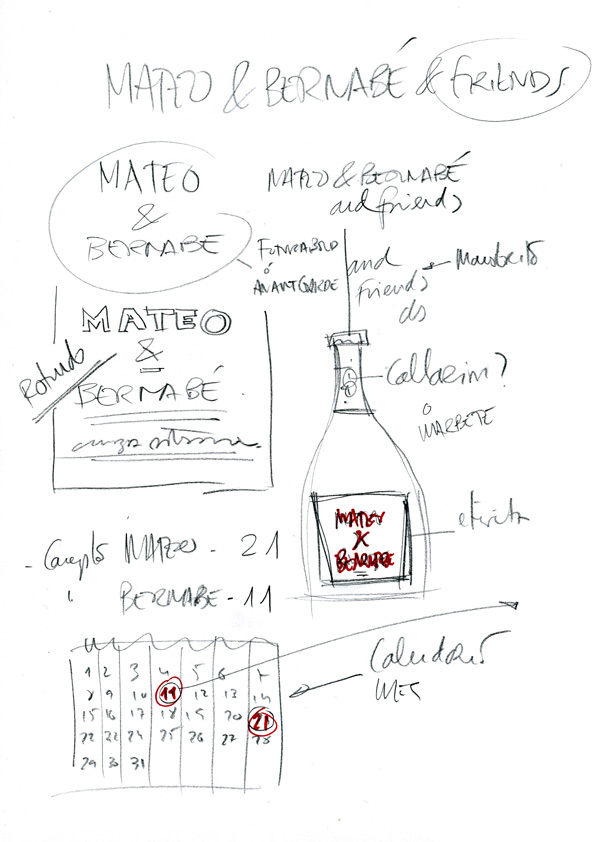 MATEO & BERNABÉ & FRIENDS
MATEO
&
BERNABÉ
MATEO & BERNABÉ
and friends
FUTURA BOLD
ó
AVANTGARDE
and
Friends
ds
Manuscrito
MATEO
&
BERNABÉ
Rotundo
Collarín?
ó
MARBETE
MATEO
&
BERNABE
etiqueta
- Concepto MATEO - 21
" BERNABE - 11
Calendario
MES
1 2 3 4 5 6 7
8 9 10 11 12 13 14
15 16 17 18 19 20 21
22 23 24 25 26 27 28
29 30 31